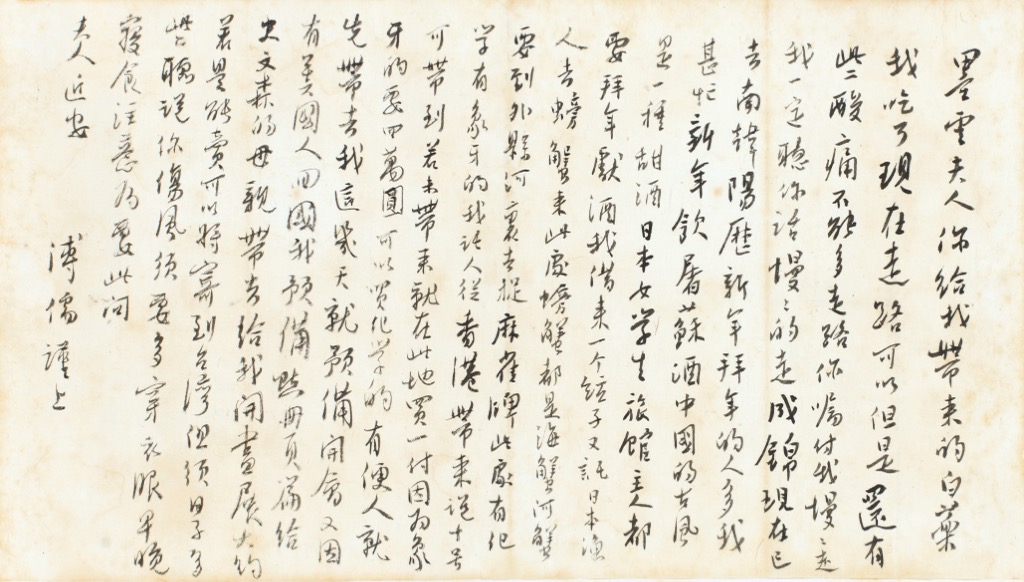 墨雲夫人你給我帶來的白藥
我吃了現在走路可以但是還有
些酸痛不能多走路你囑付我慢走
我一定聽你話慢々的走成錦現在已
去南韓陽歷新年拜年的人多我
甚忙新年飲屠蘇酒中國的古風
是一種甜酒日本女學生旅館主人都
要拜年獻酒我借來一个罈子又託日本漁
人去螃蟹來此處螃蟹都是海蟹河蟹
要到外縣河裏去捉麻雀牌此處有化
学有象牙的我託人從香港帶來說十号
可帶到若未帶來就在此地買一付因為象
牙的要四萬圓可以買化学的有便人就
先帶去我這幾天就預備開會又因
有美國人回國我預備點冊頁篇給
史文森的母親帶去給我開畫展大約
若是能賣可以將寄到台灣但須日子多
些聽說你傷風須要多穿衣服早晚
寢食注意為要此問
夫人近安
溥儒謹上